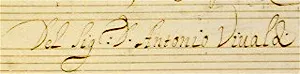 Del Sig.r D. Antonio Vivaldi